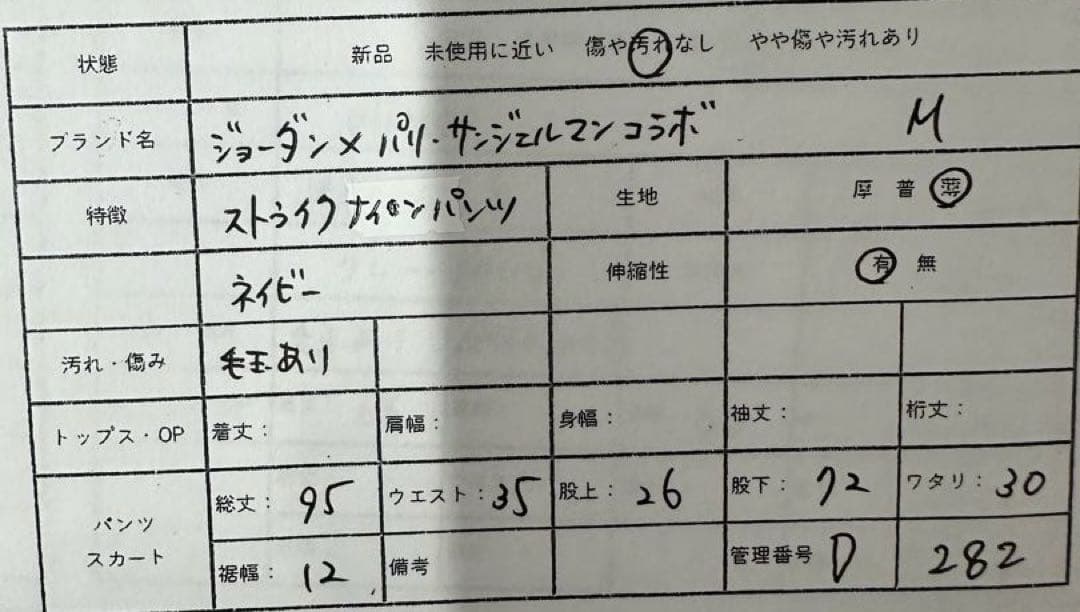 状態 新品 未使用に近い 傷や汚れなし やや傷や汚れあり
ブランド名 ジョーダン×パリ・サンジェルマンコラボ M
特徴 ストライクナイロンパンツ 生地 厚 普 薄
ネイビー 伸縮性 有 無
汚れ・傷み 毛玉あり
トップス・OP 着丈: 肩幅: 身幅: 袖丈: 裄丈:
パンツ スカート 総丈: 95 ウエスト: 35 股上: 26 股下: 72 ワタリ: 30
裾幅: 12 備考 管理番号 D 282